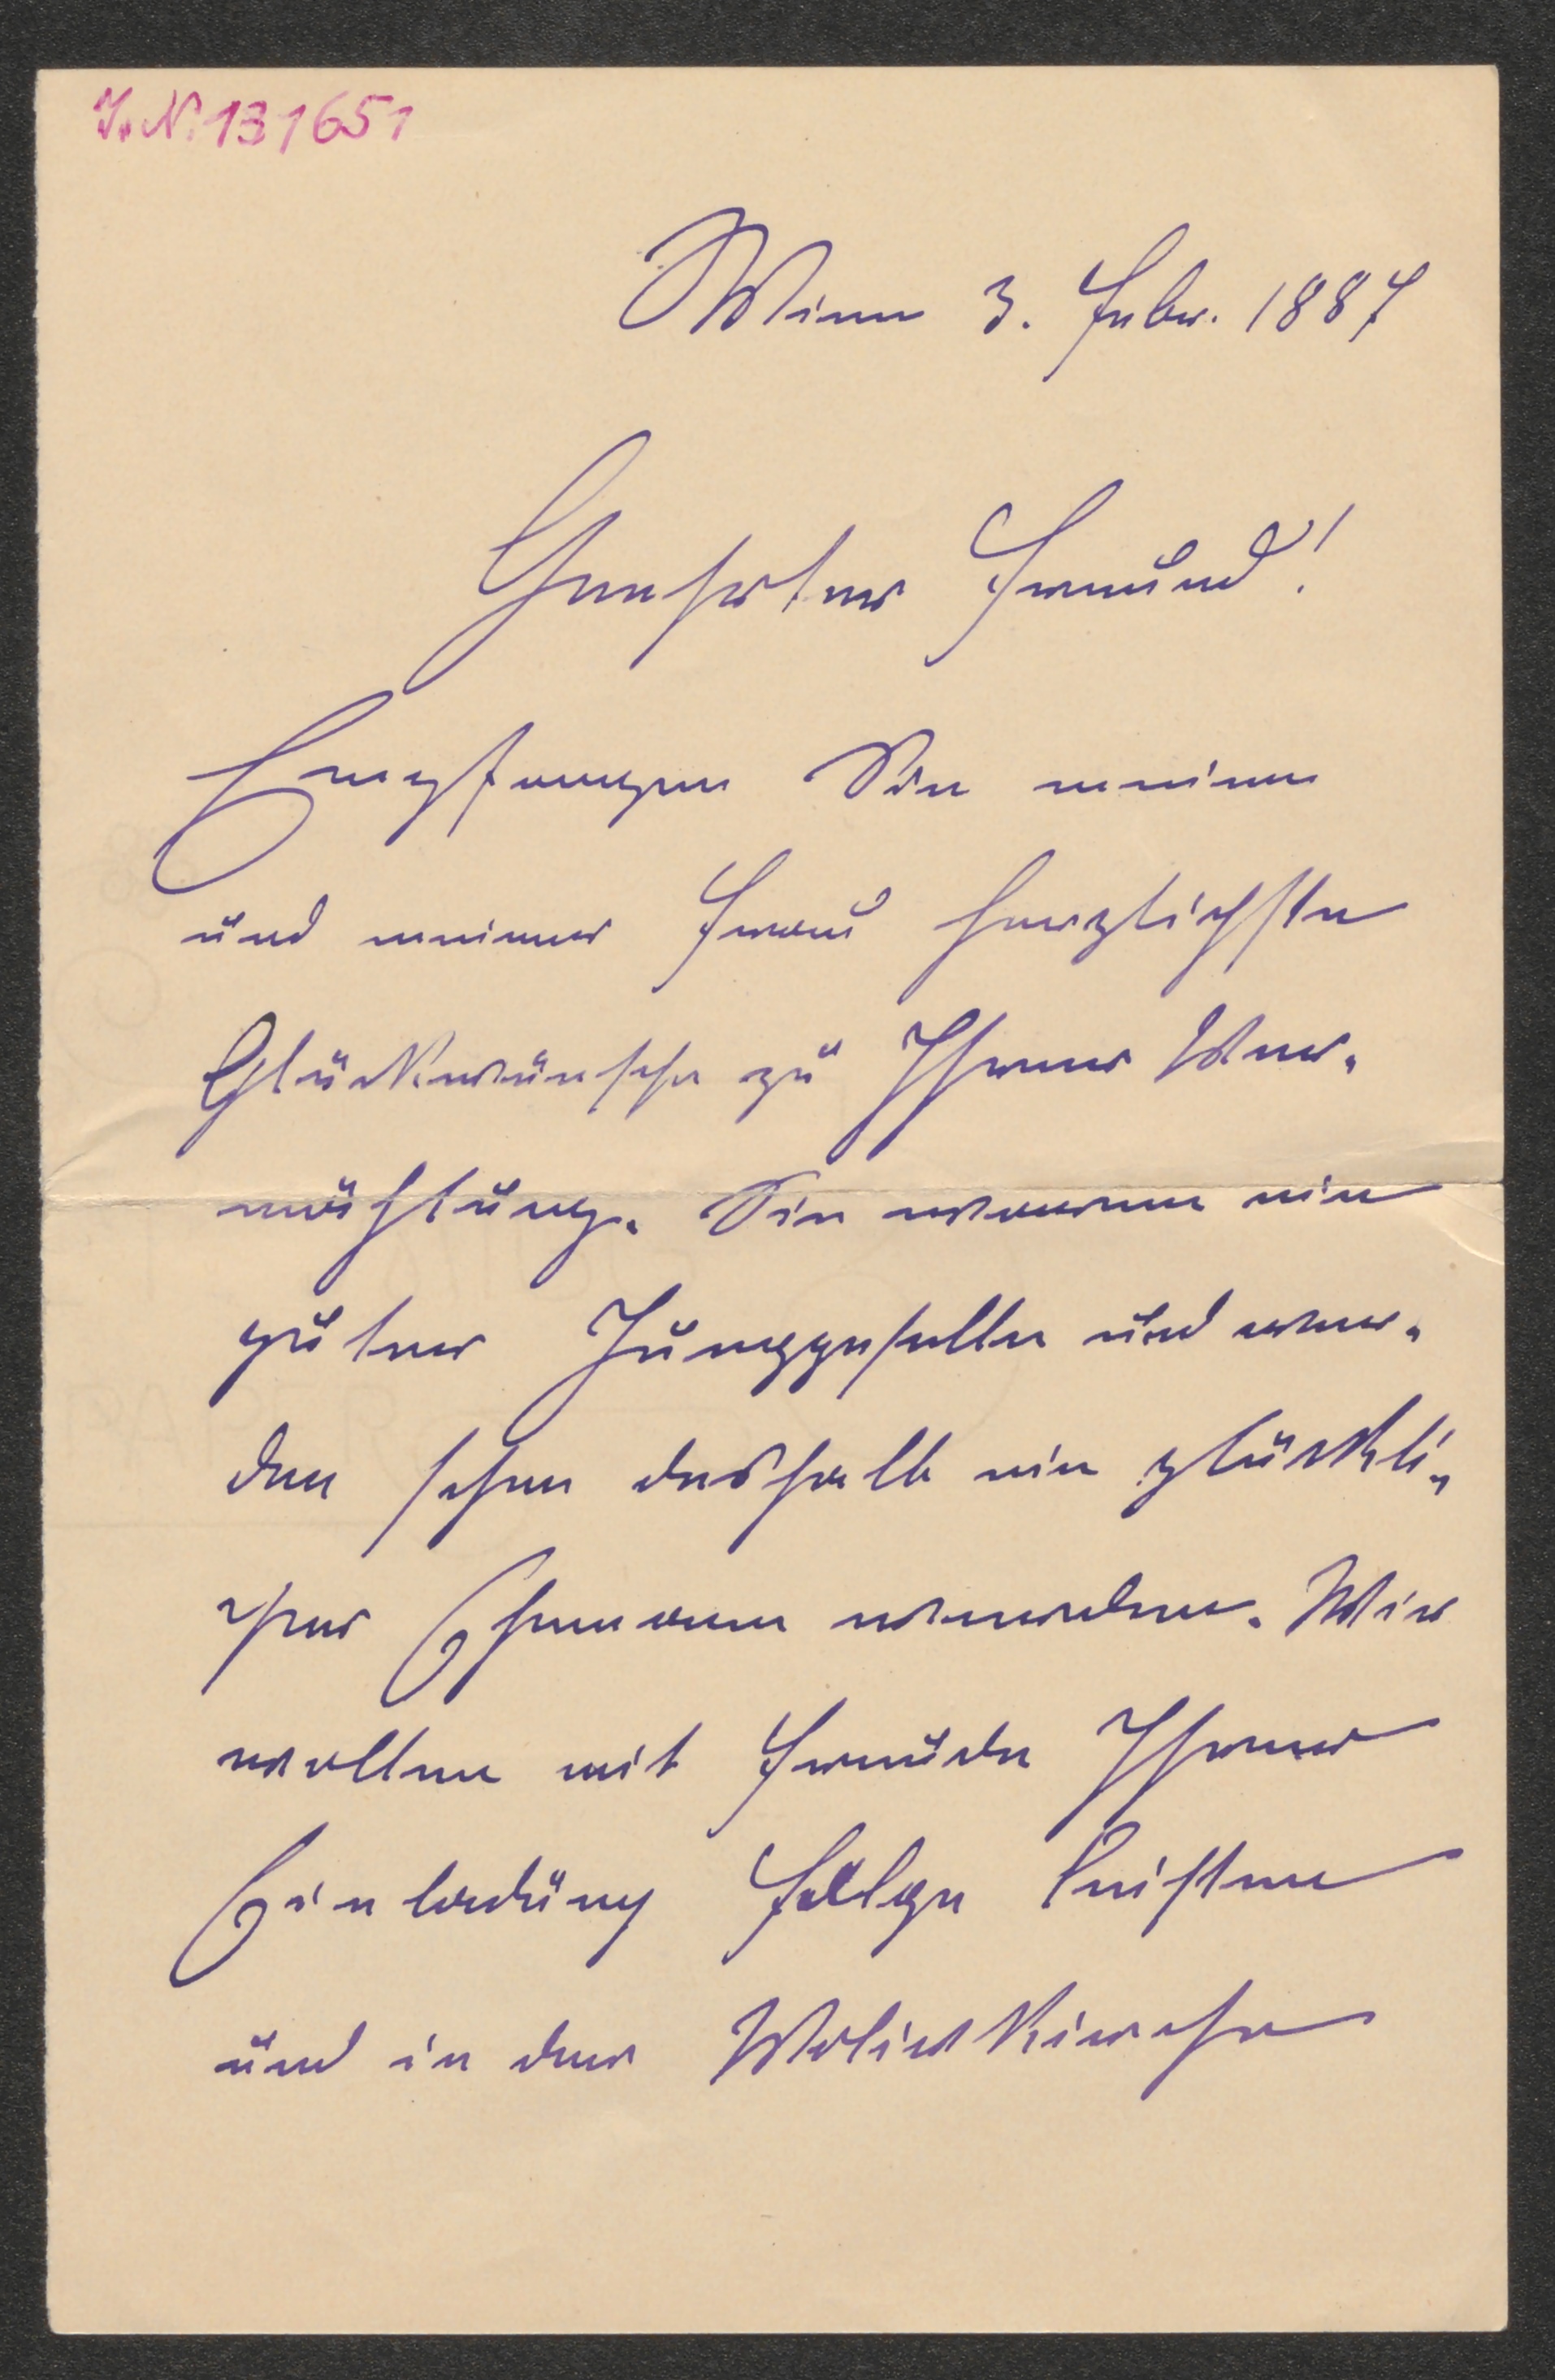 J. N. 131651
Wien 3. Febr. 1887
Geehrter Freund!
Empfangen Sie meine
und meiner Frau herzlichste
Glückwünsche zu Ihrer Ver-
mählung. Sie waren ein
guter Junggeselle und wer-
den schon deshalb ein glückli-
cher Ehemann werden. Wir
wollen mit Freude Ihrer
Einladung Folge leisten
und in der Votivkirche